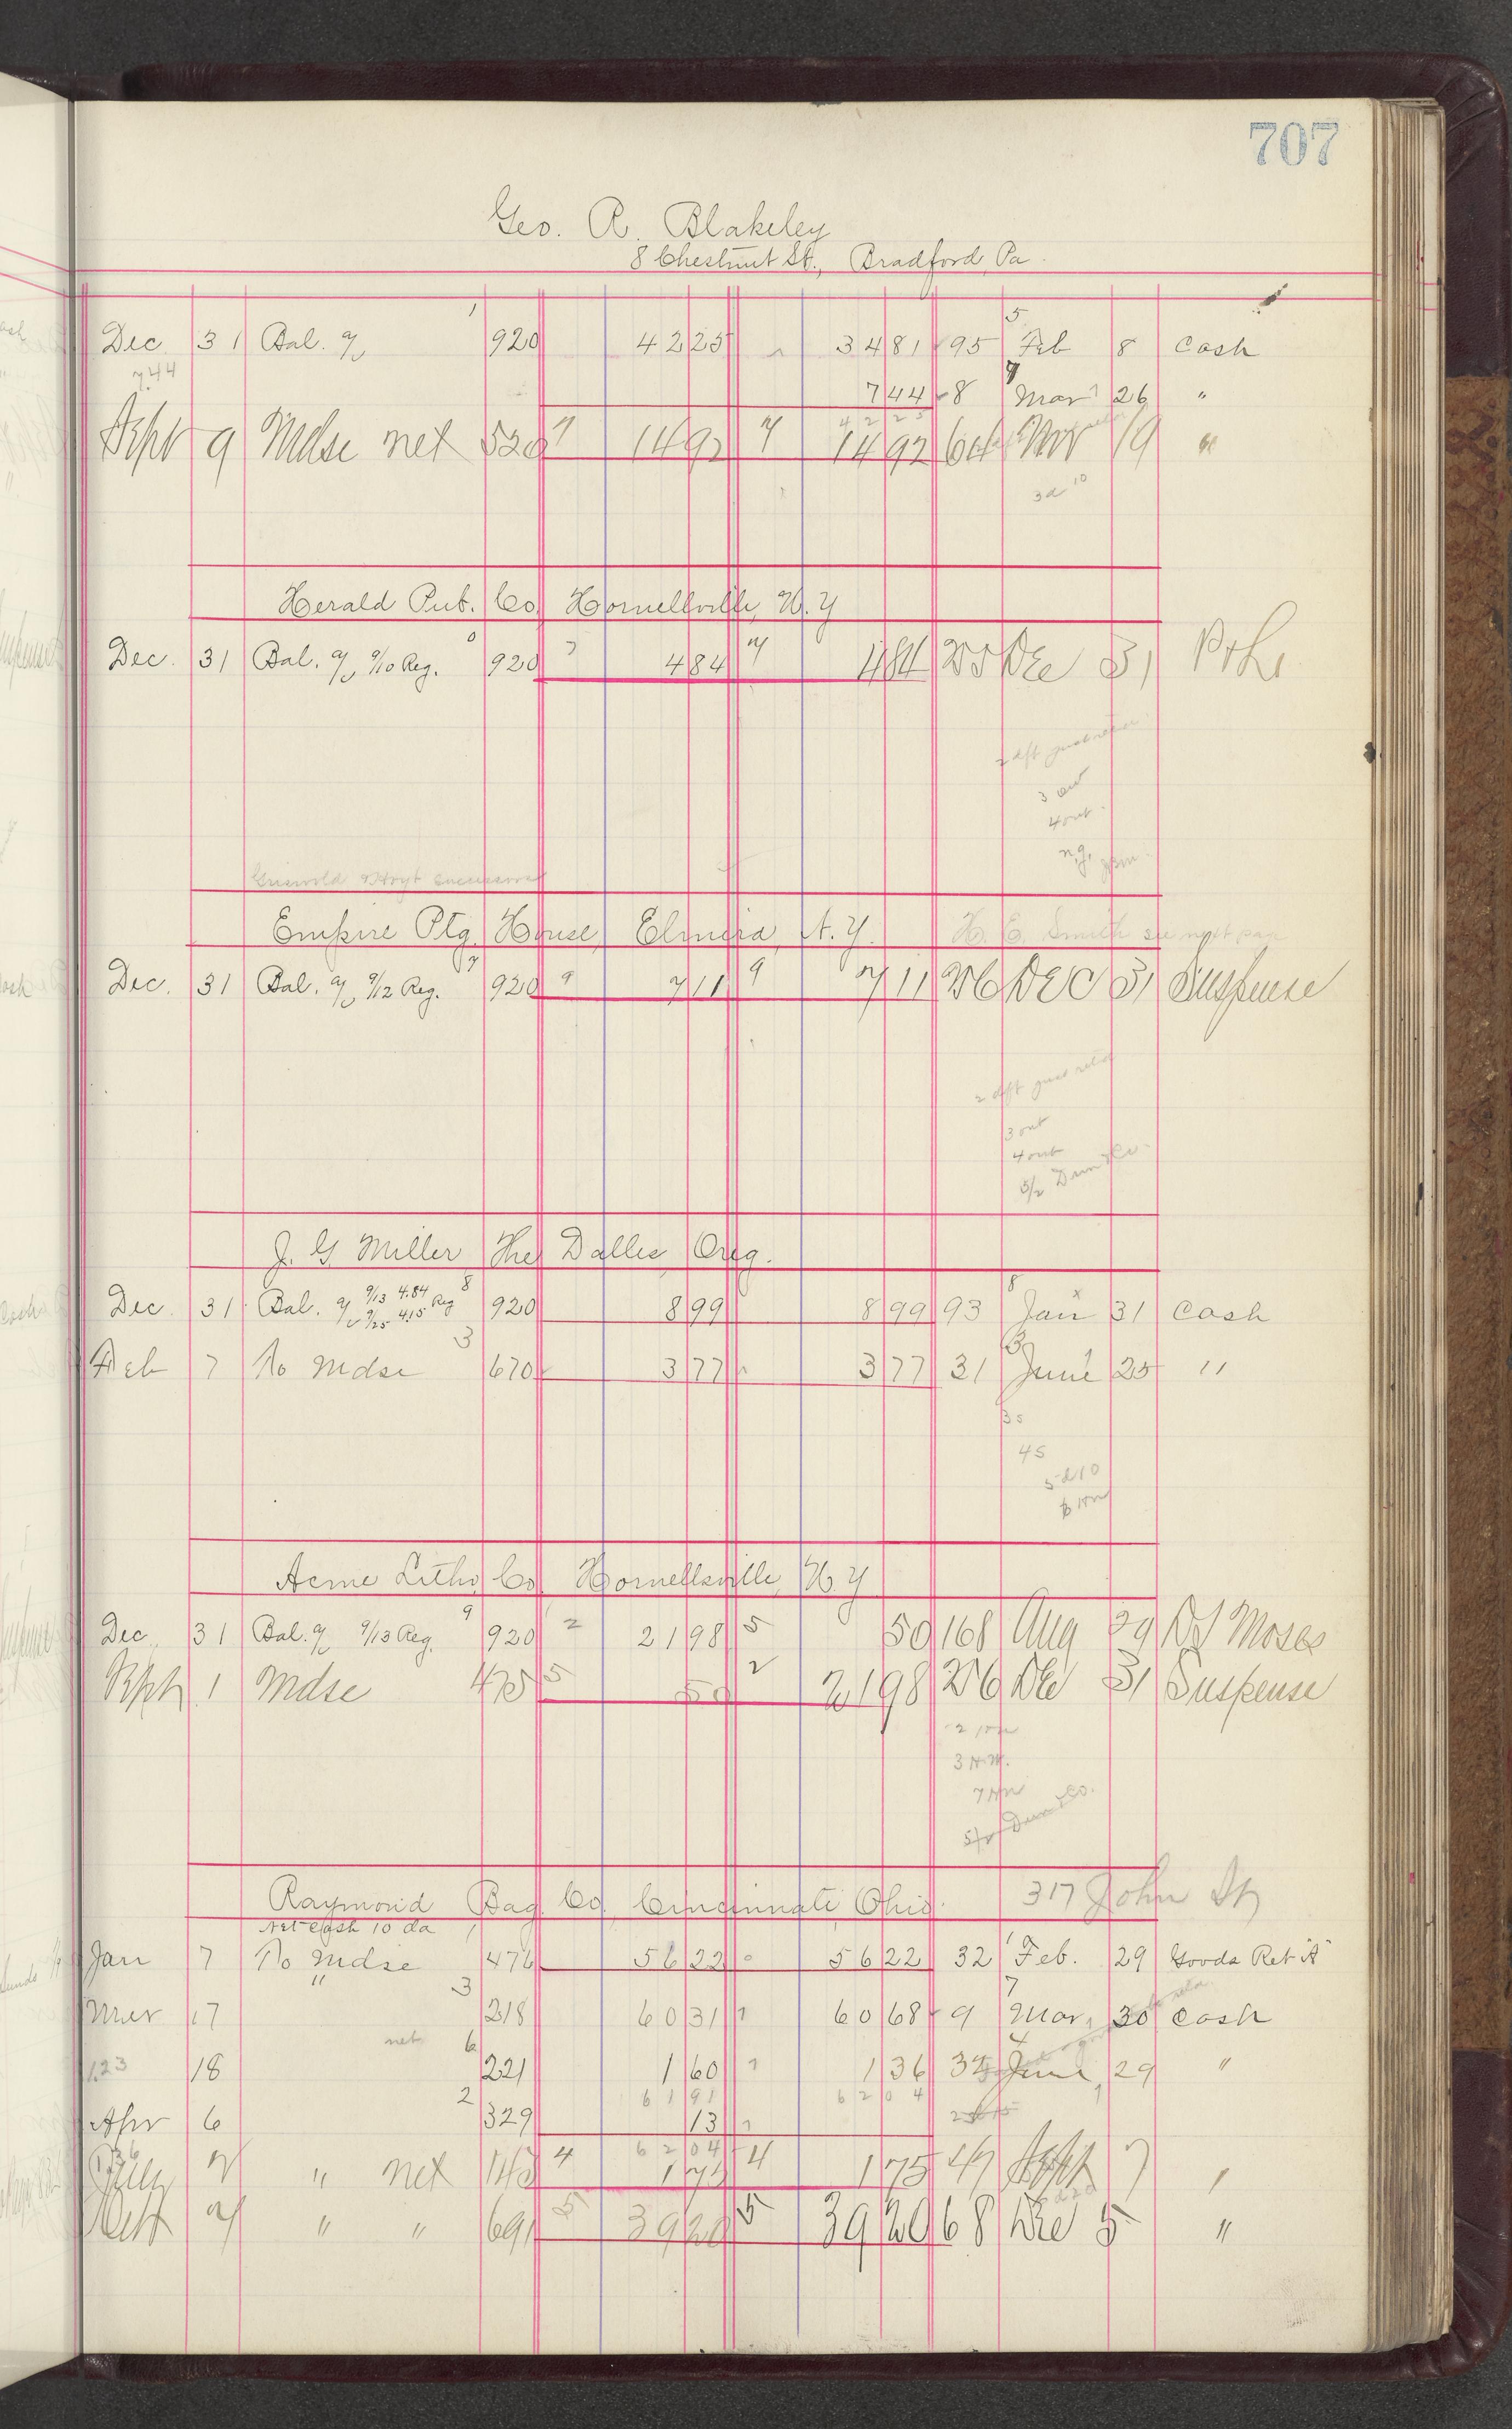 707
Geo. R. Blakeley
8 Chestnut St., Bradford, Pa.
Dec 31 Bal. 1 920 42 25 34 81 95 5 Feb 8 Cash
7.44 7 44 8 Mar 26 "
42 25
Sept 9 Mdse net 520 7 14 92 7 14 92 64 Nov 19 "
Herald Pub. Co. Hornellsville, N.Y
Dec. 31 Bal. 9/10 Reg. 920 4 84 4 84 25 Dec 31 P & L
3 out
4 out
n.g.
Griswold & Hoyt successors
Empire Ptg. House, Elmira, N.Y. H. E. Smith see next page
Dec. 31 Bal. 9/12 Reg. 920 9 7 11 9 7 11 26 DEC 31 Suspense
3 out
4 out
5/2 Dun & Co.
J. G. Miller The Dalles Oreg.
Dec. 31 Bal. 9/13 4.84 9/25 4.15 Reg 8 920 8 99 8 99 93 8 Jan 31 Cash
Feb 7 To Mdse 3 670 3 77 3 77 31 3 June 25 "
3 s
4 s
5 d 10
Acme Litho. Co. Hornellsville, N.Y
Dec. 31 Bal. 9/13 Reg. 9 920 2 21 98 5 50 168 Aug 29 Moses
Sept 1 Mdse 475 5 50 2 21 98 26 Dec 31 Suspense
3 H.M.
Dun & Co.
Raymond Bag Co. Cincinnati Ohio. 317 John St
Net cash 10 da
Jan 7 To Mdse 1 476 56 22 56 22 32 1 Feb. 29 Goods Ret'd
Mar 17 " 3 218 60 31 60 68 9 7 Mar. 30 Cash
1.23 18 net 6 221 1 60 1 36 34 4 June 29 "
61 91 62 04
Apr 6 2 329 13
62 04
July 7 " net 143 4 1 75 4 1 75 47 Sept 7 "
Oct 7 " " 691 5 39 20 5 39 20 68 Dec 5 "